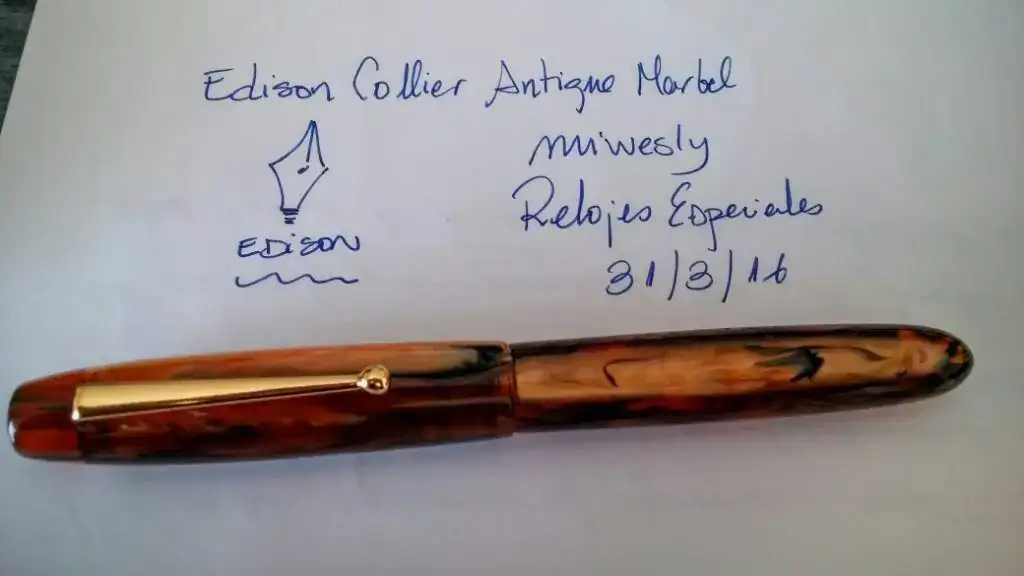 Edison Collier Antique Marbel
miwesly
Relojes Especiales
31/3/16
EDiSON